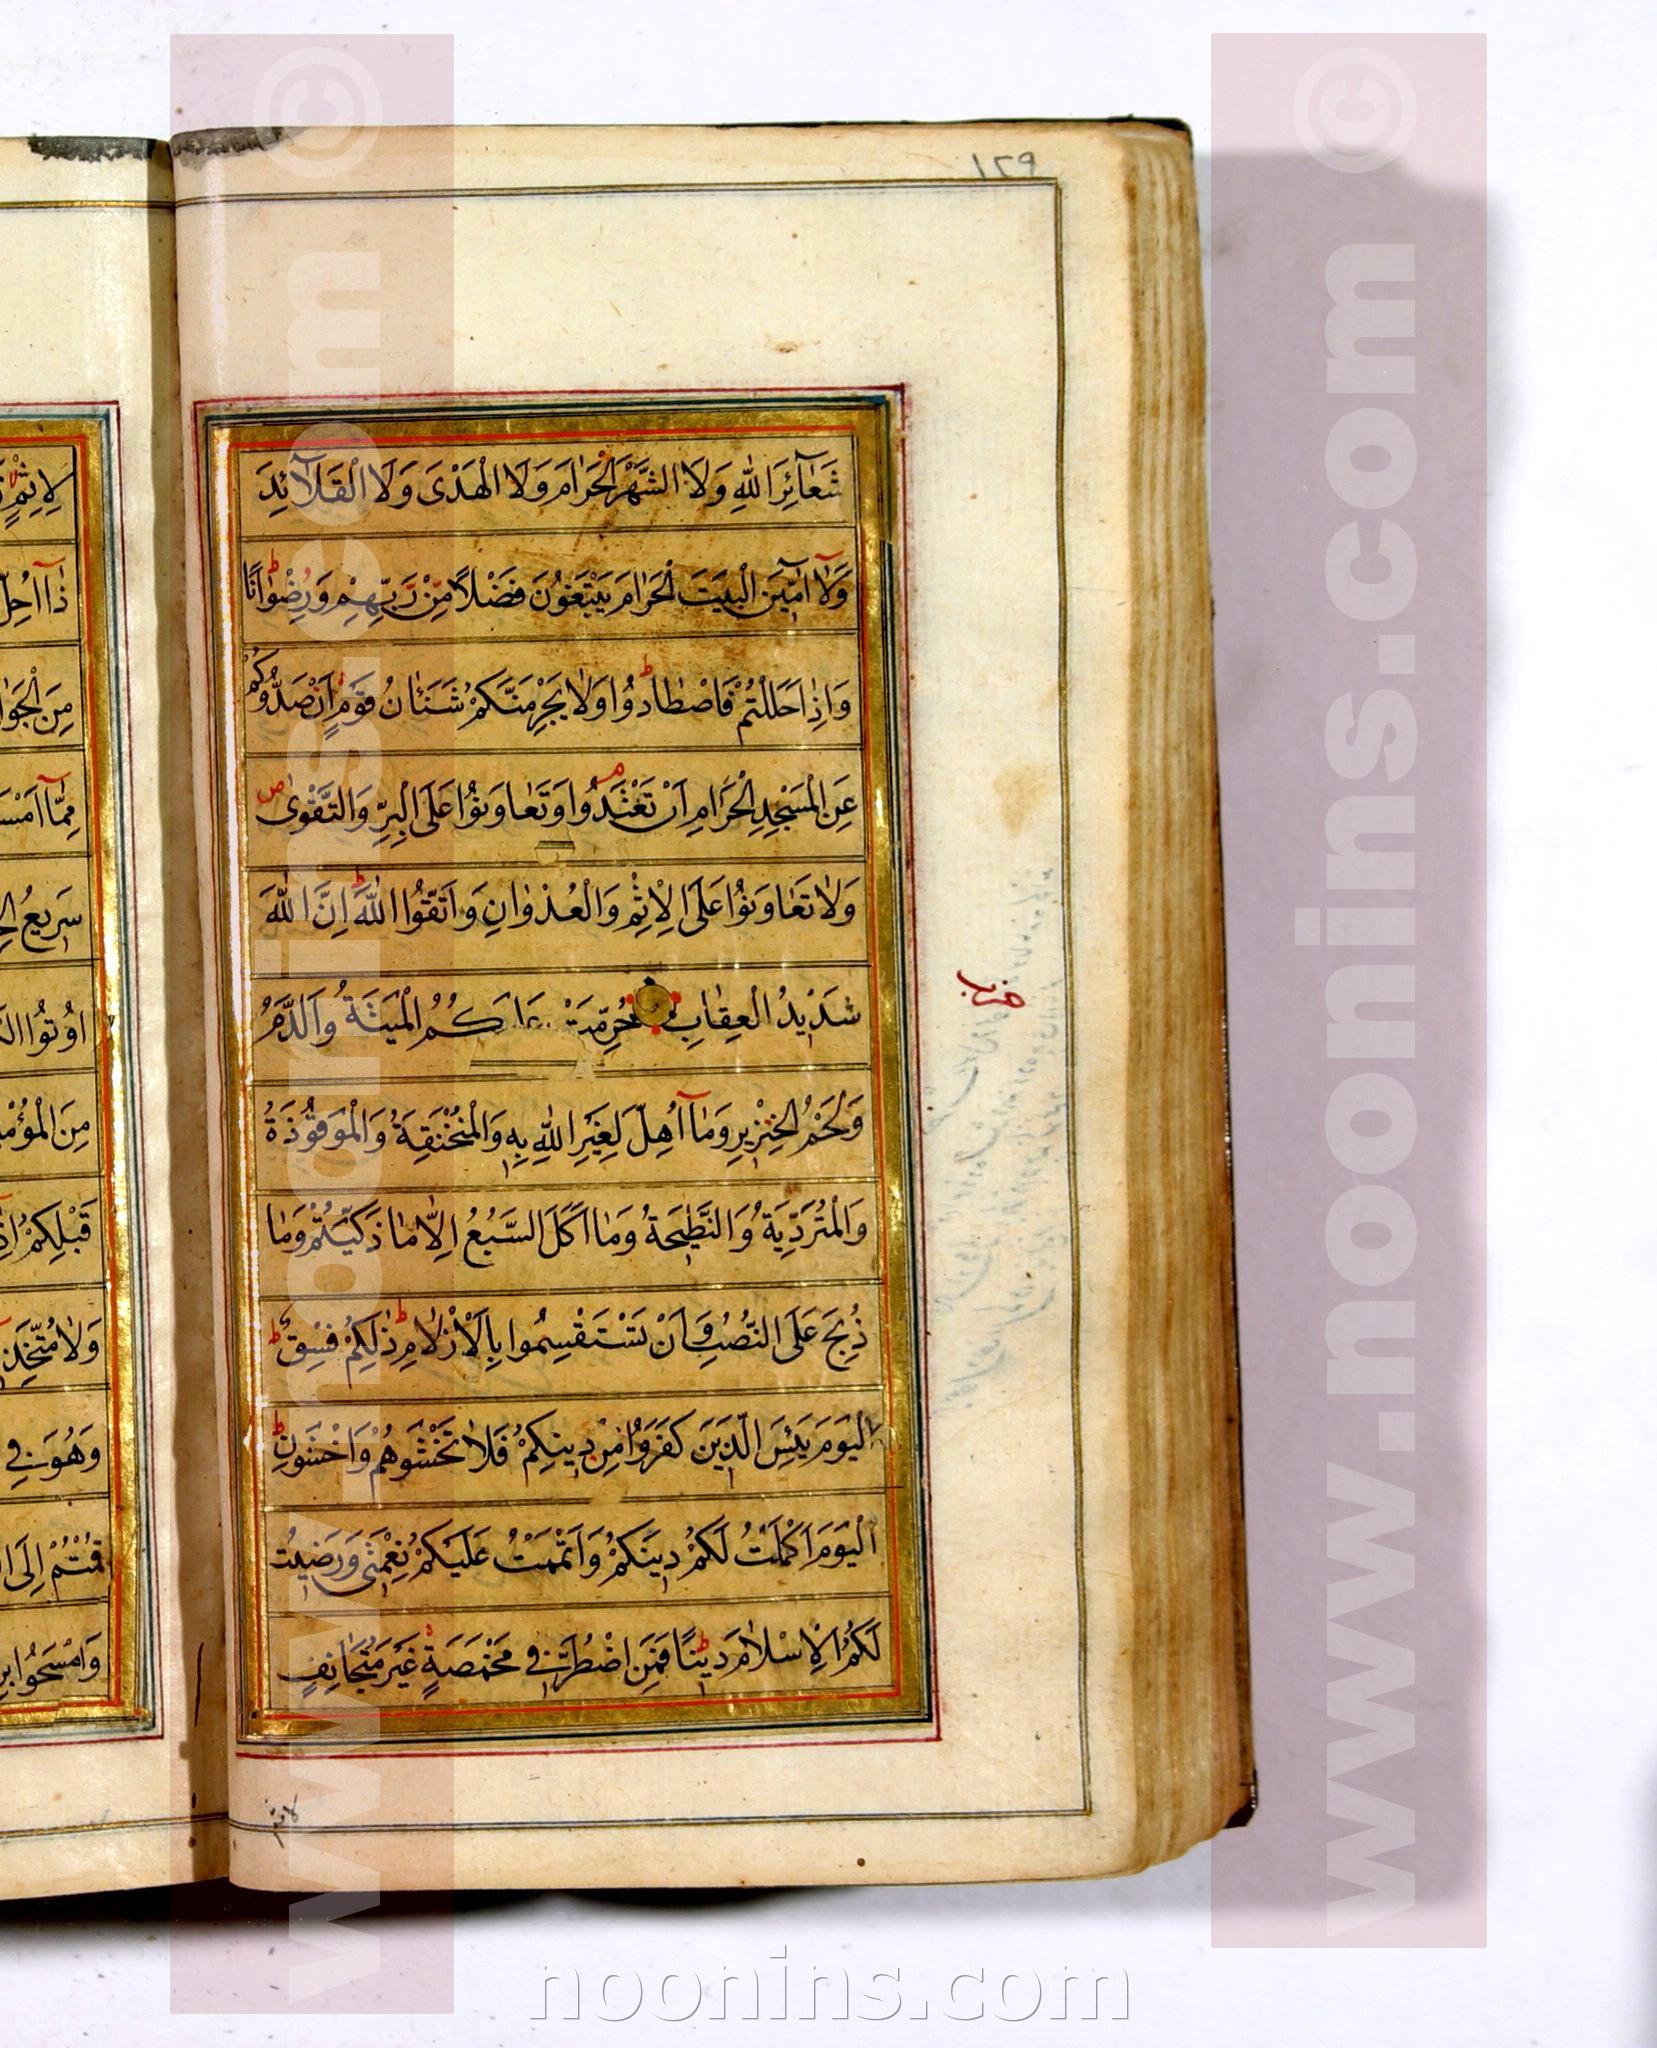 ١٢٩
شَعَآئِرَ اللهِ وَلَا الشَّهْرَ الْحَرَامَ وَلَا الْهَدْىَ وَلَا الْقَلَآئِدَ
وَلَآ آمِّينَ الْبَيْتَ الْحَرَامَ يَبْتَغُونَ فَضْلًا مِّنْ رَبِّهِمْ وَرِضْوَانًا ط
وَاِذَا حَلَلْتُمْ فَاصْطَادُوا ط وَلَا يَجْرِمَنَّكُمْ شَنَئَانُ قَوْمٍ اَنْ صَدُّوكُمْ
عَنِ الْمَسْجِدِ الْحَرَامِ اَنْ تَعْتَدُوا وَتَعَاوَنُوا عَلَى الْبِرِّ وَالتَّقْوٰى ص
وَلَا تَعَاوَنُوا عَلَى الْاِثْمِ وَالْعُدْوَانِ وَاتَّقُوا اللهَ ط اِنَّ اللهَ
شَدِيدُ الْعِقَابِ حُرِّمَتْ عَلَيْكُمُ الْمَيْتَةُ وَالدَّمُ
حزب
وَلَحْمُ الْخِنْزِيرِ وَمَآ اُهِلَّ لِغَيْرِ اللهِ بِهِ وَالْمُنْخَنِقَةُ وَالْمَوْقُوذَةُ
وَالْمُتَرَدِّيَةُ وَالنَّطِيحَةُ وَمَا اَكَلَ السَّبُعُ اِلَّا مَا ذَكَّيْتُمْ وَمَا
ذُبِحَ عَلَى النُّصُبِ وَاَنْ تَسْتَقْسِمُوا بِالْاَزْلَامِ ط ذٰلِكُمْ فِسْقٌ ط
اَلْيَوْمَ يَئِسَ الَّذِينَ كَفَرُوا مِنْ دِينِكُمْ فَلَا تَخْشَوْهُمْ وَاخْشَوْنِ ط
اَلْيَوْمَ اَكْمَلْتُ لَكُمْ دِينَكُمْ وَاَتْمَمْتُ عَلَيْكُمْ نِعْمَتِى وَرَضِيتُ
لَكُمُ الْاِسْلَامَ دِينًا ط فَمَنِ اضْطُرَّ فِى مَخْمَصَةٍ غَيْرَ مُتَجَانِفٍ
لاثم
لِاِثْمٍ
مِنَ
سَرِيعُ
اُوتُوا
مِنَ
قَبْلِكُمْ
وَلَا
وَهُوَ فِى
قُمْتُمْ اِلَى
www.noonins.com ©
www.noonins.com ©
noonins.com